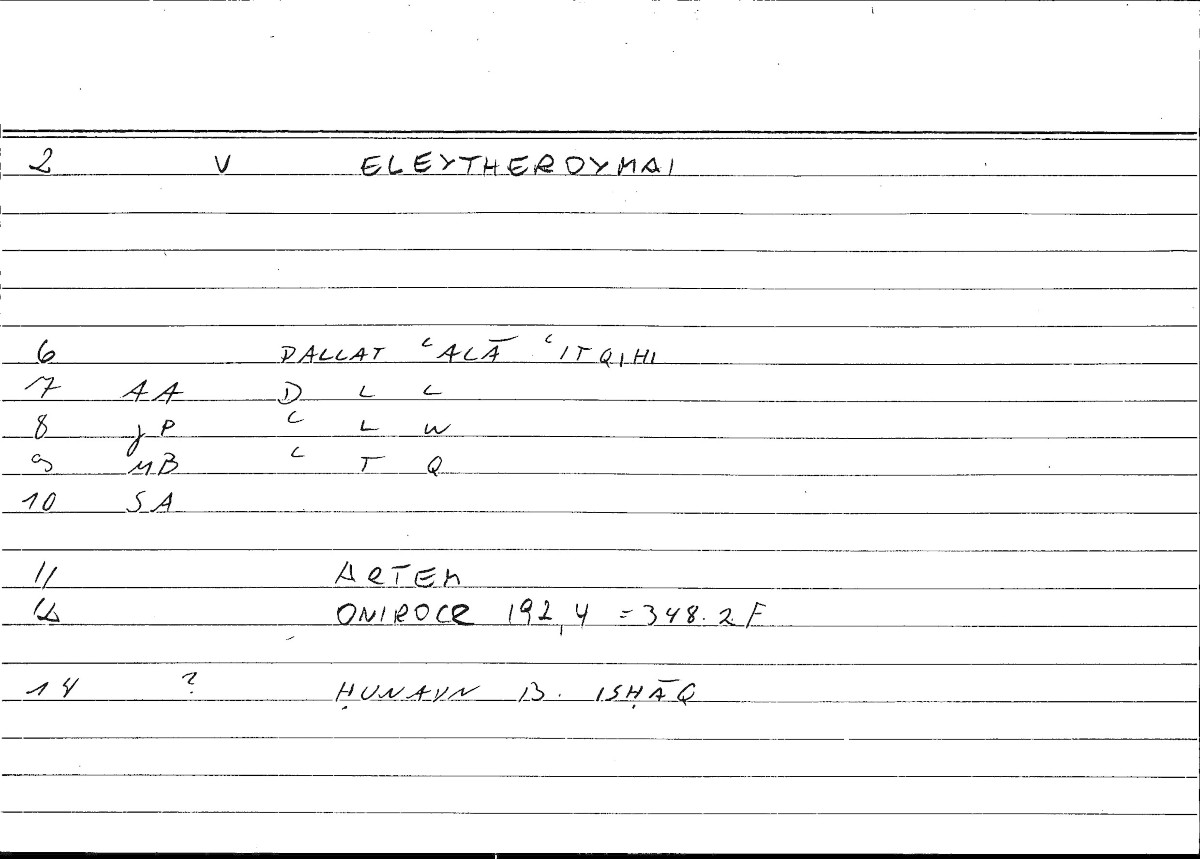 2 V ELEYTHEROYMAI
6 DALLAT ʿALĀ ʿITQIHI
7 AA D L L
8 JP ʿ L W
9 MB ʿ T Q
10 SA
11 ARTEM
12 ONIROCR 192,4 = 348.2 F
14 ? ḤUNAYN B. ISḤĀQ